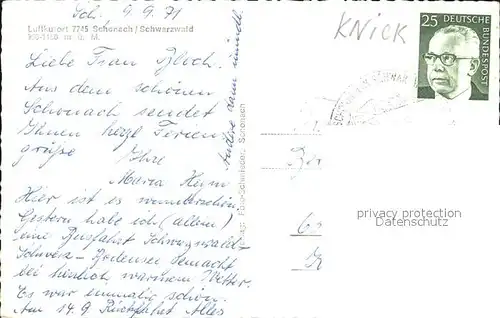 Sch. 9.9.71
Luftkurort 7745 Schonach/Schwarzwald
900-1150 m ü. M.
Liebe Frau Bloch.
Aus dem schönen
Schonach sendet
Ihnen herzl. Ferien
grüße Ihre
Maria Heym
Hier ist es wunderschön
Gestern habe ich (allein)
eine Busfahrt Schwarzwald-
Schweiz - Bodensee gemacht
bei herrlich warmem Wetter.
Es war einmalig schön.
Am 14.9 Rückfahrt Alles
Andere dann mündl.
Foto-Schmieder, Schonach
KNICK
25 DEUTSCHE
BUNDESPOST
privacy protection
Datenschutz